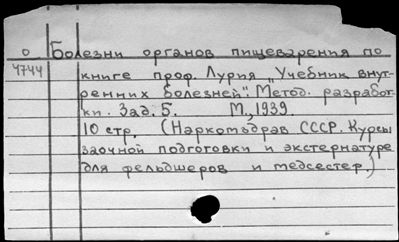 О Болезни органов пищеварения по
4744 книге проф. Лурия „Учебник внут-
ренних болезней". Метод. разработ-
ки. Зад. 5. М., 1939.
10 стр. (Наркомздрав СССР. Курсы
заочной подготовки и экстернатуре
для фельдшеров и медсестер.)